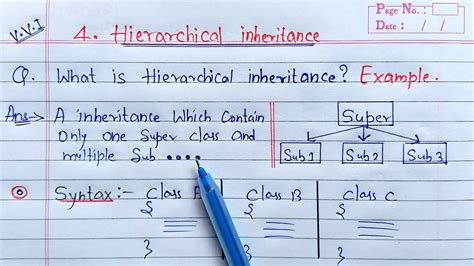 V.V.I
Page No.
Date : / /
4. Hierarchical inheritance
Q. What is Hierarchical inheritance? Example.
Ans:- A inheritance Which Contain
Only one Super class and
multiple Sub ....
Super
Sub 1 Sub 2 Sub 3
Syntax :- Class A Class B Class C
{ { {
} } }